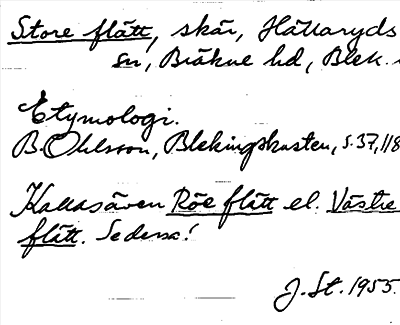 Store flätt, skär, Hällaryds
sn, Bräkne hd, Blek.
Etymologi.
B. Ohlsson, Blekingskusten, s. 37, 118
Kallas även Röe flätt el. Västre
flätt. Se dessa!
J. St. 1955.